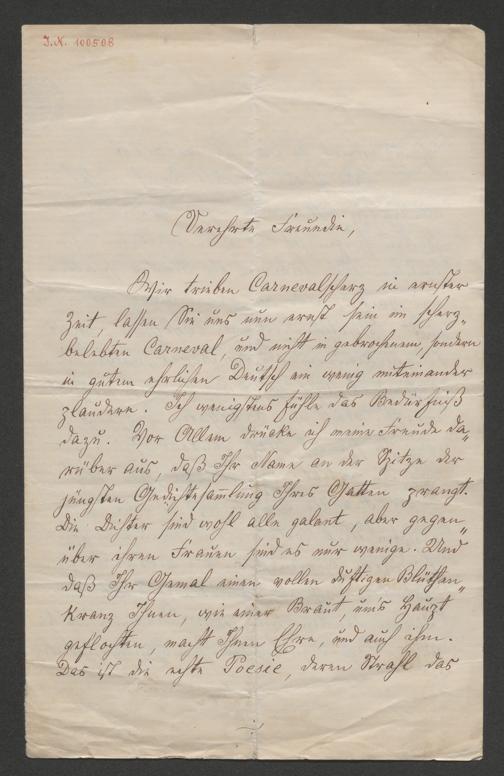 I.N. 100508
Verehrte Freundin,
Wir trieben Carnevalscherz in ernster
Zeit, lassen Sie uns nun ernst sein im scherz„
belebten Carneval, und nicht in gebrochenem, sondern
in gutem ehrlichen Deutsch ein wenig miteinander
plaudern. Ich wenigstens fühle das Bedürfniß
dazu. Vor Allem drücke ich meine Freude da„
rüber aus, daß Ihr Name an der Spitze der
jüngsten Gedichtesammlung Ihres Gatten prangt.
Die Dichter sind wohl alle galant, aber gegen„
über ihren Frauen sind es nur wenige. Und
daß Ihr Gemal einen vollen duftigen Blüthen„
kranz Ihnen, wie einer Braut, ums Haupt
geflochten, macht Ihnen Ehre, und auch ihm.
Das ist die echte Poesie, deren Strahl das